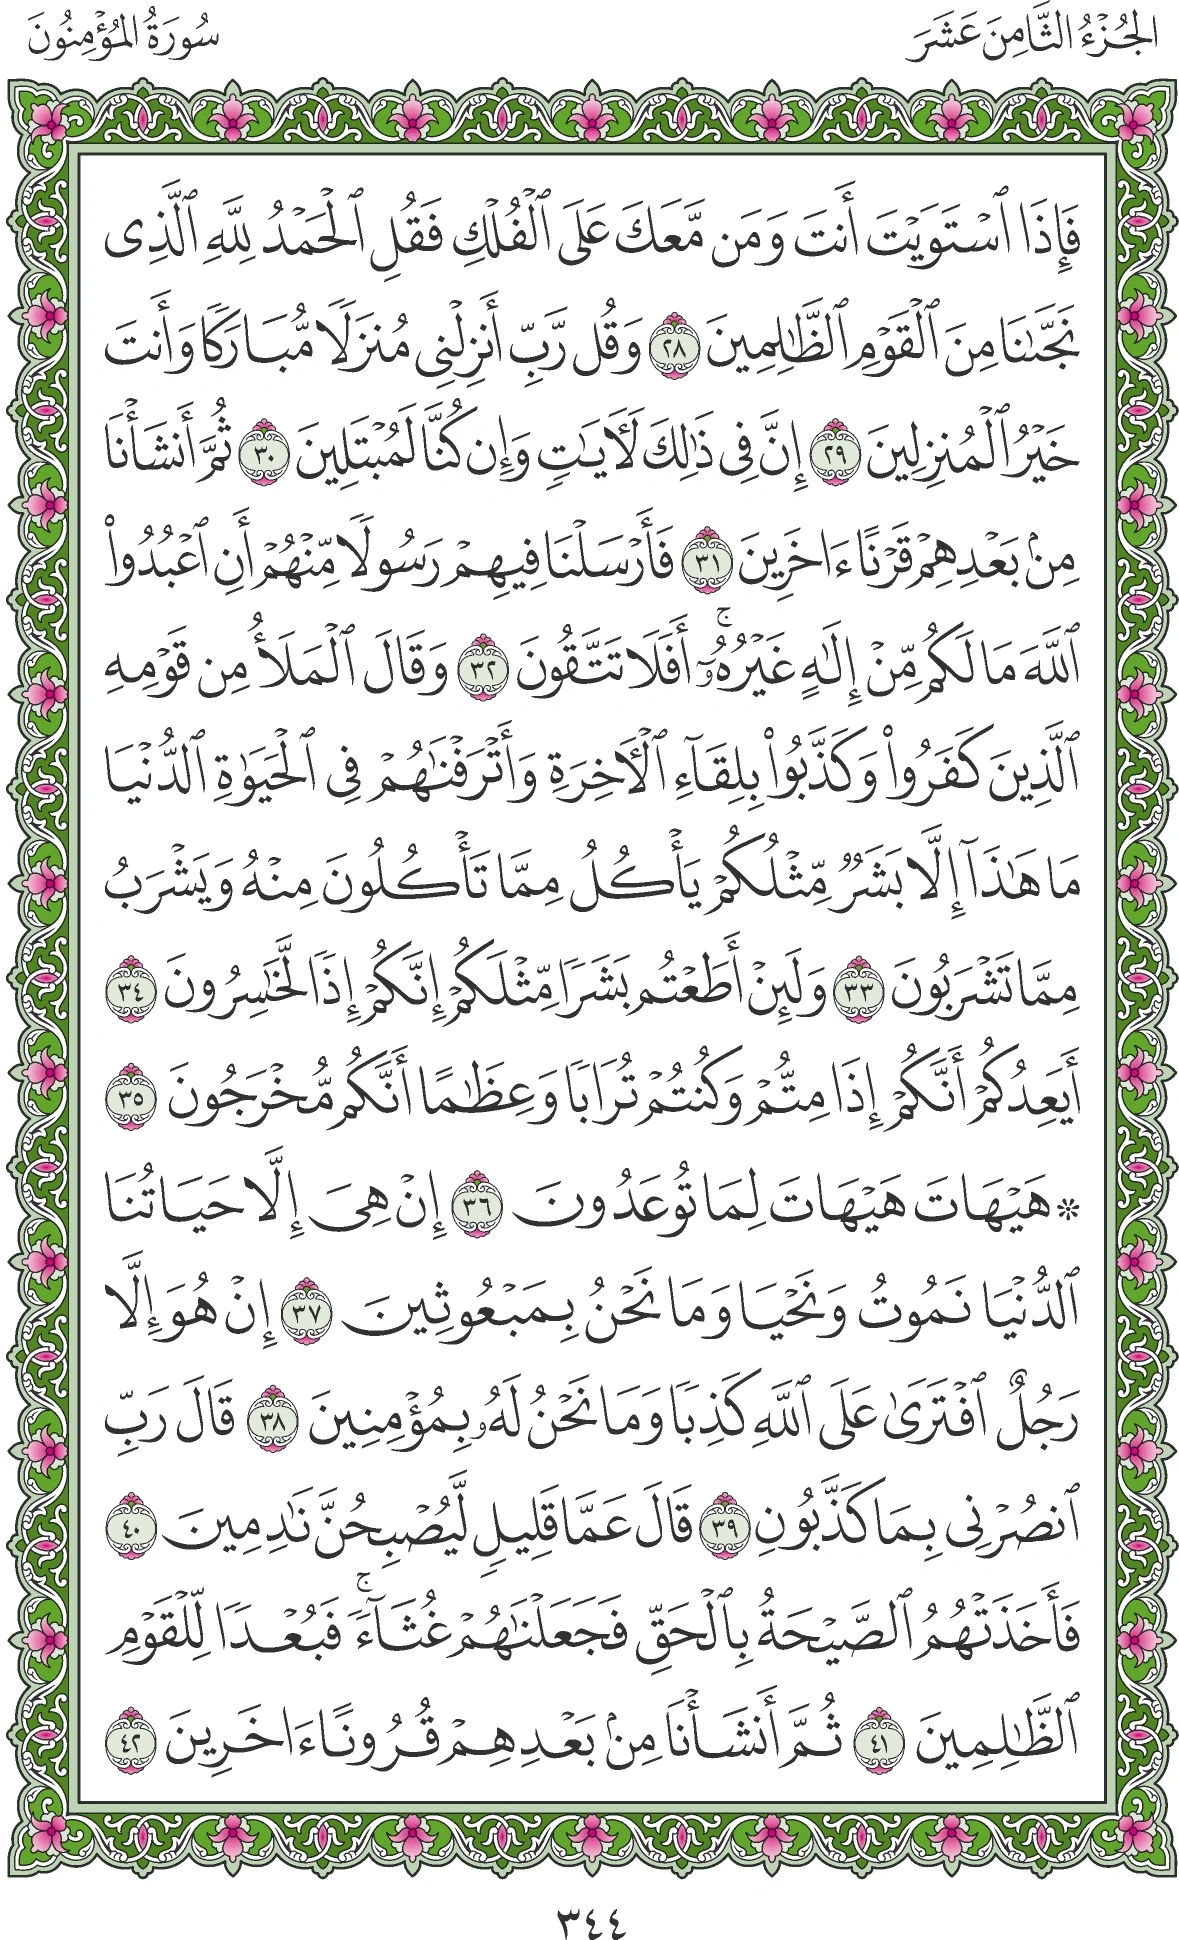 الجُزْءُ الثَّامِنَ عَشَرَ
سُورَةُ المُؤْمِنُونَ
فَإِذَا ٱسْتَوَيْتَ أَنتَ وَمَن مَّعَكَ عَلَى ٱلْفُلْكِ فَقُلِ ٱلْحَمْدُ لِلَّهِ ٱلَّذِى
نَجَّىٰنَا مِنَ ٱلْقَوْمِ ٱلظَّٰلِمِينَ ٢٨ وَقُل رَّبِّ أَنزِلْنِى مُنزَلًا مُّبَارَكًا وَأَنتَ
خَيْرُ ٱلْمُنزِلِينَ ٢٩ إِنَّ فِى ذَٰلِكَ لَأٓيَٰتٍ وَإِن كُنَّا لَمُبْتَلِينَ ٣٠ ثُمَّ أَنشَأْنَا
مِنۢ بَعْدِهِمْ قَرْنًا ءَاخَرِينَ ٣١ فَأَرْسَلْنَا فِيهِمْ رَسُولًا مِّنْهُمْ أَنِ ٱعْبُدُوا۟
ٱللَّهَ مَا لَكُم مِّنْ إِلَٰهٍ غَيْرُهُۥٓ ۚ أَفَلَا تَتَّقُونَ ٣٢ وَقَالَ ٱلْمَلَأُ مِن قَوْمِهِ
ٱلَّذِينَ كَفَرُوا۟ وَكَذَّبُوا۟ بِلِقَآءِ ٱلْأَخِرَةِ وَأَتْرَفْنَٰهُمْ فِى ٱلْحَيَوٰةِ ٱلدُّنْيَا
مَا هَٰذَآ إِلَّا بَشَرٌ مِّثْلُكُمْ يَأْكُلُ مِمَّا تَأْكُلُونَ مِنْهُ وَيَشْرَبُ
مِمَّا تَشْرَبُونَ ٣٣ وَلَئِنْ أَطَعْتُم بَشَرًا مِّثْلَكُمْ إِنَّكُمْ إِذًا لَّخَٰسِرُونَ ٣٤
أَيَعِدُكُمْ أَنَّكُمْ إِذَا مِتُّمْ وَكُنتُمْ تُرَابًا وَعِظَٰمًا أَنَّكُم مُّخْرَجُونَ ٣٥
۞ هَيْهَاتَ هَيْهَاتَ لِمَا تُوعَدُونَ ٣٦ إِنْ هِىَ إِلَّا حَيَاتُنَا
ٱلدُّنْيَا نَمُوتُ وَنَحْيَا وَمَا نَحْنُ بِمَبْعُوثِينَ ٣٧ إِنْ هُوَ إِلَّا
رَجُلٌ ٱفْتَرَىٰ عَلَى ٱللَّهِ كَذِبًا وَمَا نَحْنُ لَهُۥ بِمُؤْمِنِينَ ٣٨ قَالَ رَبِّ
ٱنصُرْنِى بِمَا كَذَّبُونِ ٣٩ قَالَ عَمَّا قَلِيلٍ لَّيُصْبِحُنَّ نَٰدِمِينَ ٤٠
فَأَخَذَتْهُمُ ٱلصَّيْحَةُ بِٱلْحَقِّ فَجَعَلْنَٰهُمْ غُثَآءً ۚ فَبُعْدًا لِّلْقَوْمِ
ٱلظَّٰلِمِينَ ٤١ ثُمَّ أَنشَأْنَا مِنۢ بَعْدِهِمْ قُرُونًا ءَاخَرِينَ ٤٢
٣٤٤